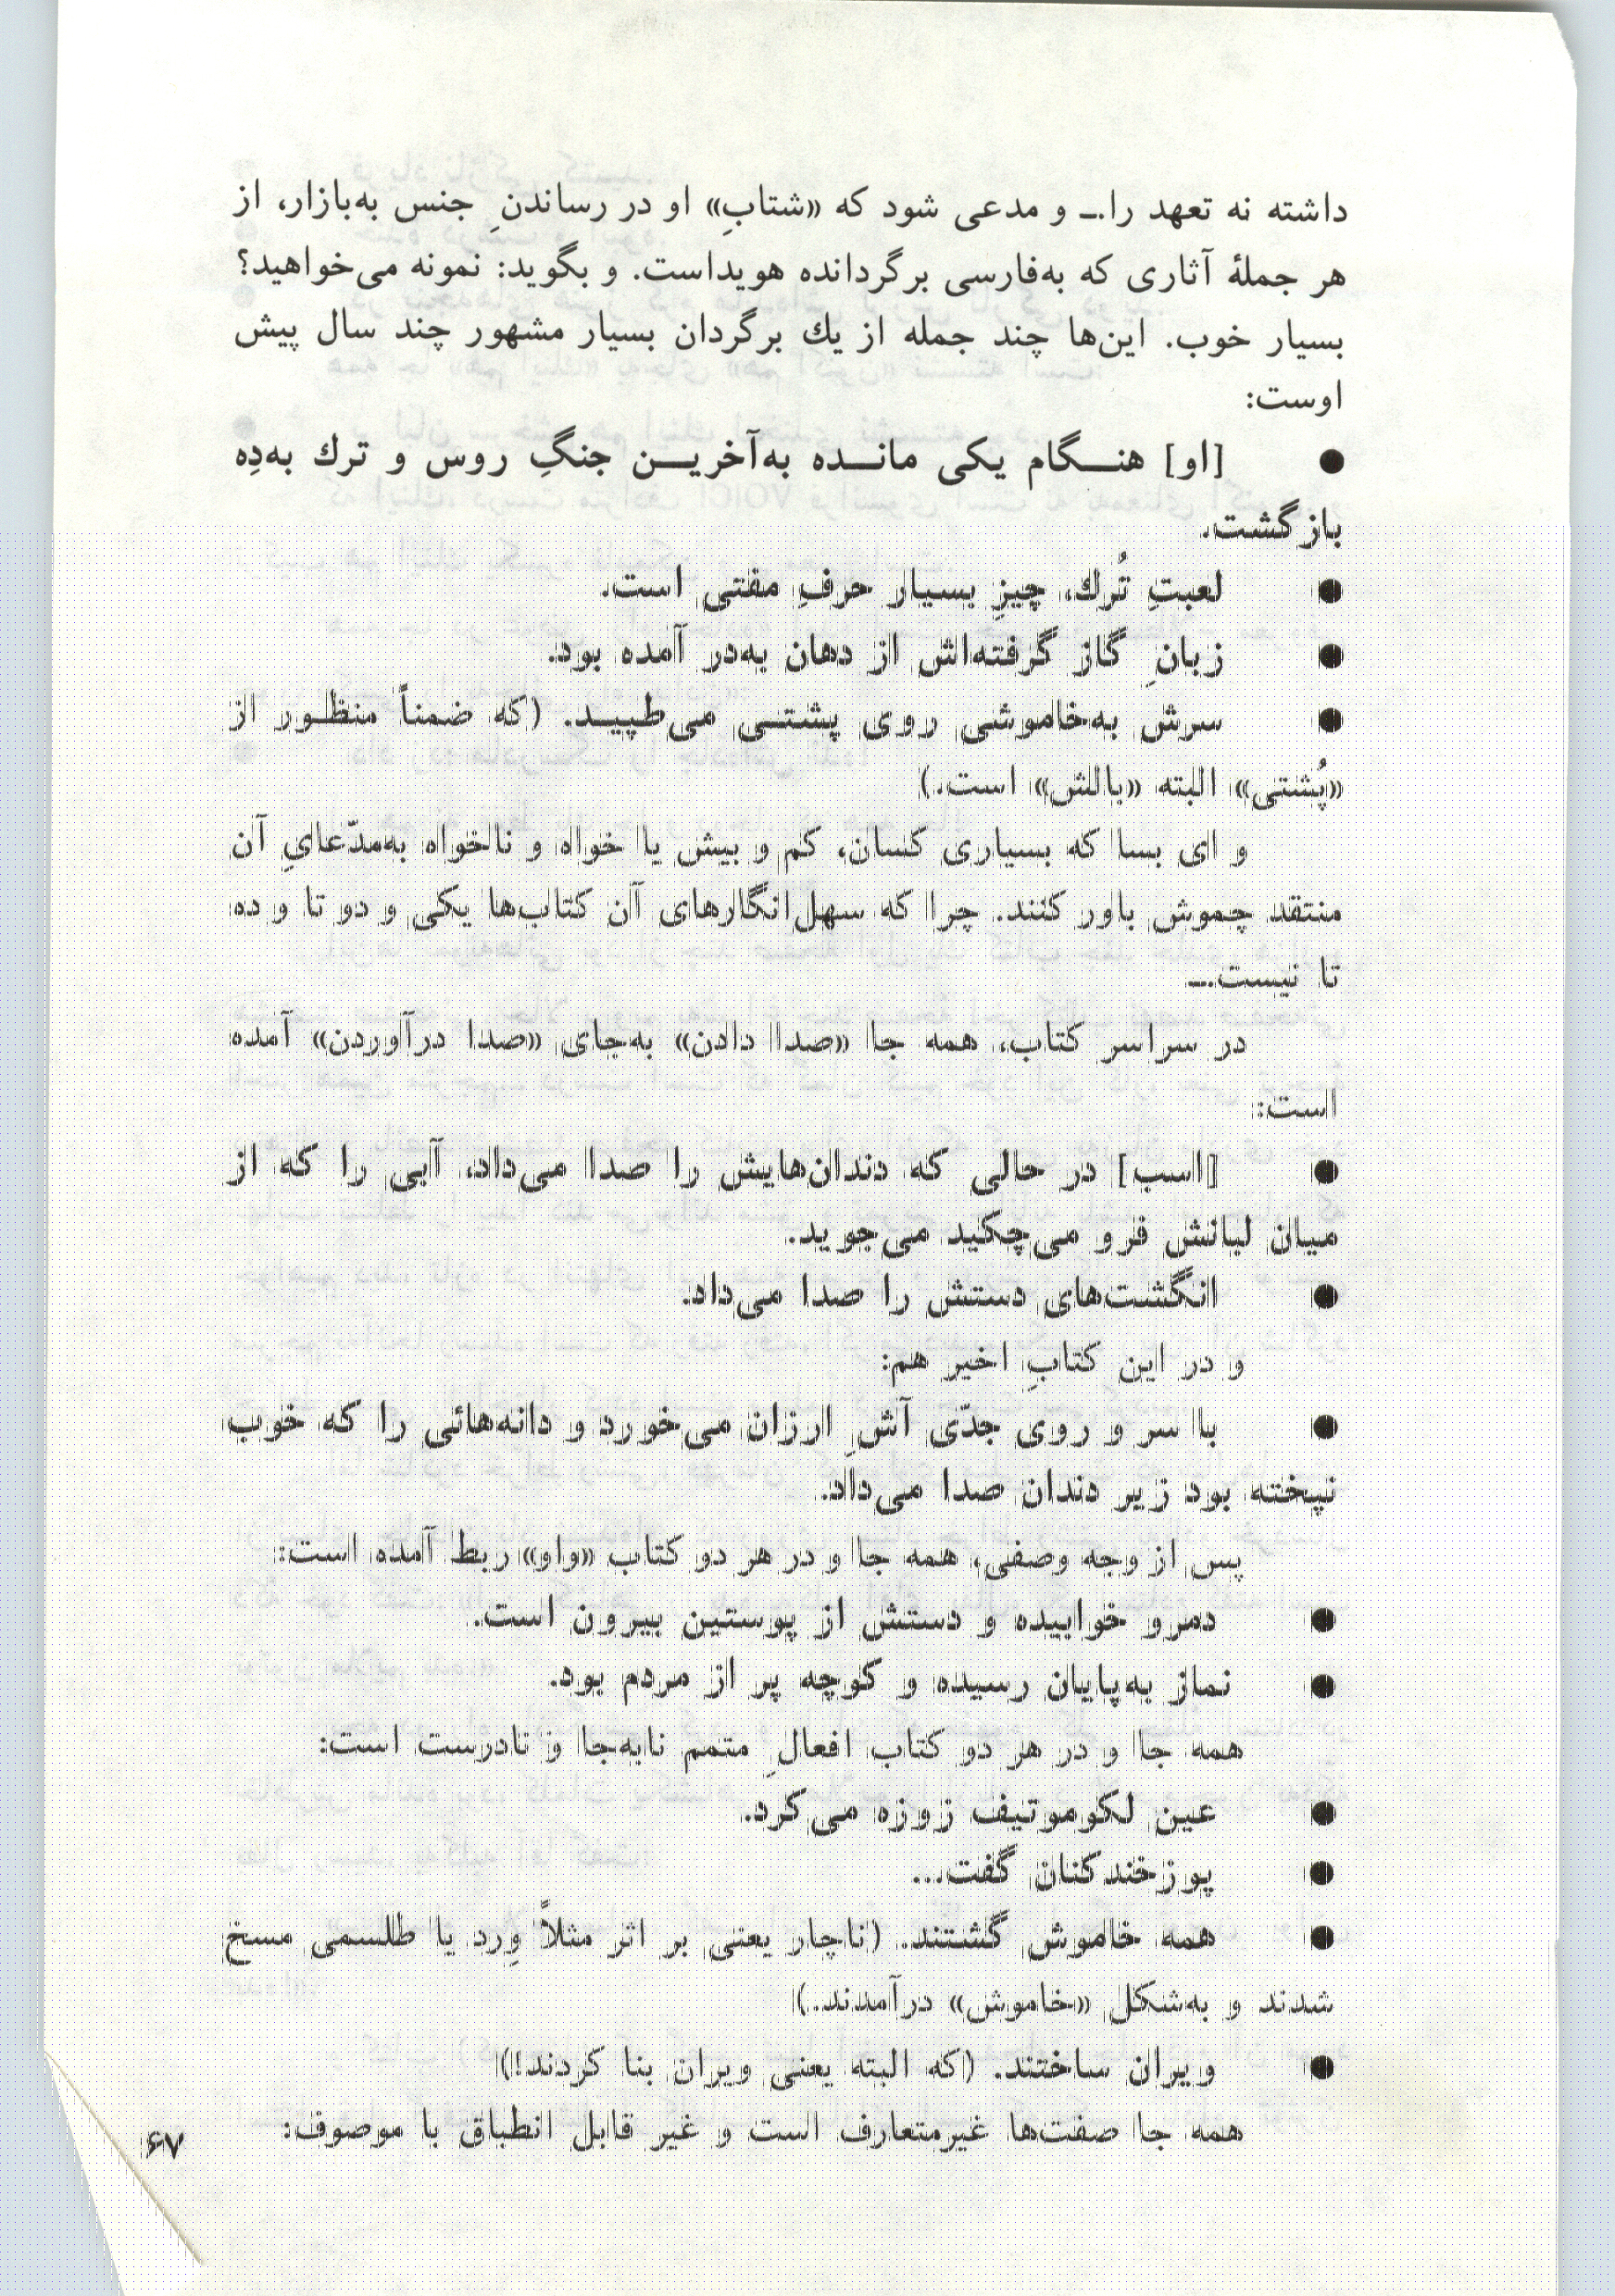 داشته نه تعهد را.ــ و مدعی شود که «شتابِ» او در رساندنِ جنس به‌بازار، از
هر جملهٔ آثاری که به‌فارسی برگردانده هویداست. و بگوید: نمونه می‌خواهید؟
بسیار خوب. این‌ها چند جمله از یك برگردان بسیار مشهور چند سال پیش
اوست:
● [او] هنـــگام یکی مانـــده به‌آخریـــن جنگِ روس و ترك به‌دِه
بازگشت.
● لعبتِ تُرك، چیزِ بسیار حرفِ مفتی است.
● زبانِ گاز گرفته‌اش از دهان به‌در آمده بود.
● سرش به‌خاموشی روی پشتــی می‌طپیــد. (که ضمناً منظــور از
«پُشتی» البته «بالش» است.)
و ای بسا که بسیاری کسان، کم و بیش یا خواه و ناخواه به‌مدّعایِ آن
منتقد چموش باور کنند. چرا که سهل‌انگارهای آن کتاب‌ها یکی و دو تا و ده
تا نیست.ــ
در سراسر کتاب، همه جا «صدا دادن» به‌جای «صدا درآوردن» آمده
است:
● [اسب] در حالی که دندان‌هایش را صدا می‌داد، آبی را که از
میان لبانش فرو می‌چکید می‌جوید.
● انگشت‌های دستش را صدا می‌داد.
و در این کتابِ اخیر هم:
● با سر و روی جدّی آشِ ارزان می‌خورد و دانه‌هائی را که خوب
نپخته بود زیر دندان صدا می‌داد.
پس از وجه وصفی، همه جا و در هر دو کتاب «واو» ربط آمده است:
● دمرو خوابیده و دستش از پوستین بیرون است.
● نماز به‌پایان رسیده و کوچه پر از مردم بود.
همه جا و در هر دو کتاب افعالِ متمم نابه‌جا و نادرست است:
● عین لکوموتیف زوزه می‌کرد.
● پوزخندکنان گفت...
● همه خاموش گشتند. (ناچار یعنی بر اثر مثلاً وِرد یا طلسمی مسخ
شدند و به‌شکل «خاموش» درآمدند.)
● ویران ساختند. (که البته یعنی ویران بنا کردند!)
همه جا صفت‌ها غیرمتعارف است و غیر قابل انطباق با موصوف:
۶۷